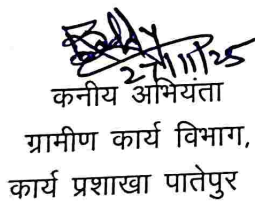 27/11/25
कनीय अभियंता
ग्रामीण कार्य विभाग,
कार्य प्रशाखा पातेपुर